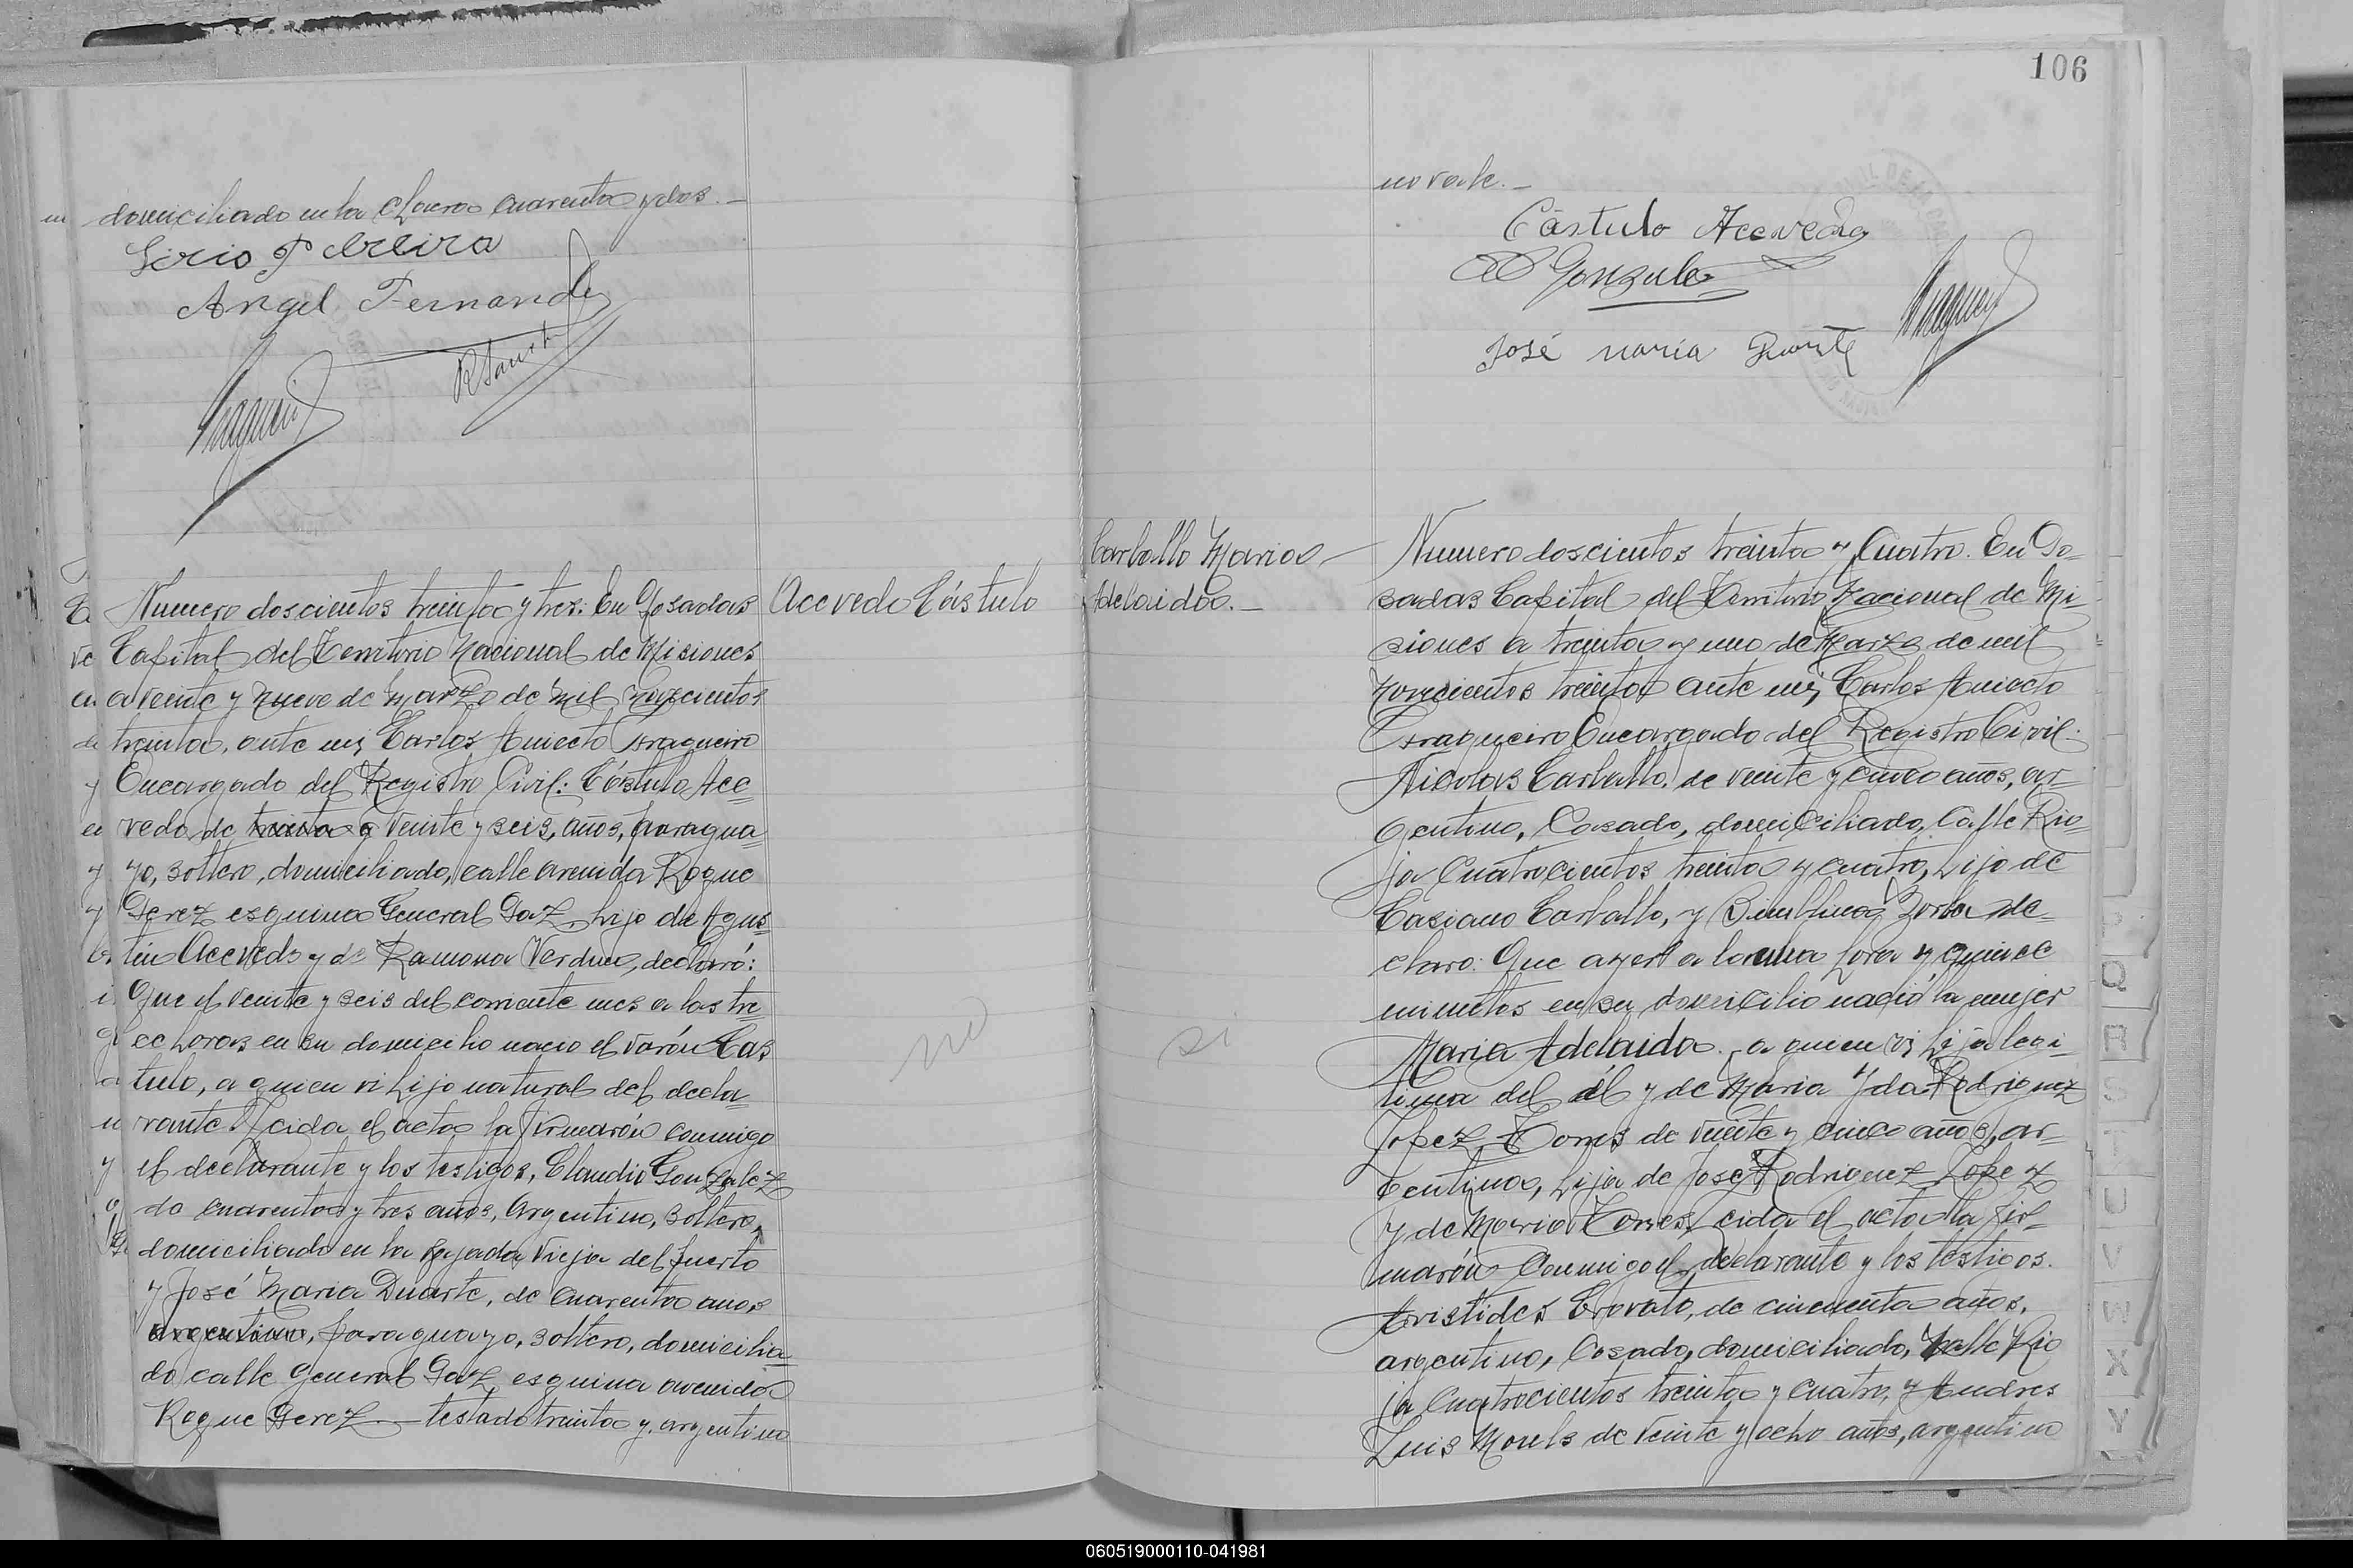 domiciliado en la chacra cuarenta y dos.—
Angel Fernandez
Acevedo Cástulo
Numero doscientos treinta y tres. En Posadas
Capital del Territorio Nacional de Misiones
a veinte y nueve de Marzo de mil novecientos
treinta, ante mi, Carlos Aniecto Fraqueiro
Encargado del Registro Civil: Cástulo Ace-
vedo, de treinta y veinte y seis, años, paragua-
yo, soltero, domiciliado, calle avenida Roque
Perez esquina General Paz, hijo de Agus-
tin Acevedo y de Ramona Verdun, declaró:
Que el veinte y seis del corriente mes a las tre-
ce horas en su domicilio nacio el varón Cas
tulo, a quien vi hijo natural del decla-
rante. Leida el acta la firmarón conmigo
el declarante y los testigos, Claudio Gonzalez
de cuarenta y tres años, argentino, soltero,
domiciliado en la bajada vieja del puerto
y José Maria Duarte, de cuarenta anos
argentino, paraguayo, soltero, domicilia-
do calle General Paz esquina avenida
Roque Perez.— testado treinta y, argentino
no
106
no vale.—
Cástulo Acevedo
Gonzalez
José maria Duarte
Carballo Maria
Adelaida.—
Numero doscientos treinta y Cuatro. En Po-
sadas Capital del Territorio Nacional de Mi-
siones a treinta y uno de Marzo de mil
novecientos treinta ante mi, Carlos Aniecto
Fraqueiro Encargado del Registro Civil:
Nicolas Carballo, de veinte y cinco años, ar-
gentino, Casado, domiciliado, Calle Rio-
ja Cuatrocientos treinta y cuatro, hijo de
Casiano Carballo, y de-
claro: Que ayer a la una hora y quince
minutos en su domicilio nació la mujer
Maria Adelaida. a quien vi hija legi-
tima del él y de Maria Yda Rodriguez
Lopez Torres de veinte y cinco años, ar-
gentina, hija de José Rodriguez Lopez
y de Maria Torres, Leida el acta la fir-
marón Conmigo el declarante y los testigos.
Aristides Crovato, de cincuenta años,
argentino, Casado, domiciliado, Calle Rio
ja Cuatrocientos treinta y cuatro, y Andres
Luis de veinte y ocho años, argentino
si
Q
R
S
T
U
V
W
X
Y
060519000110-041981